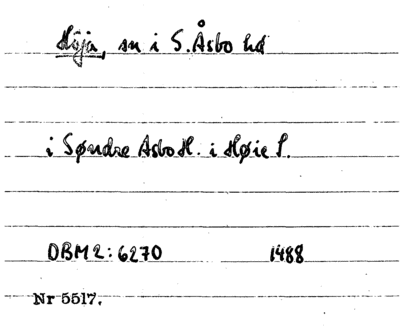 Höja, sn i S. Åsbo hd
i Søndre Asbo H. i Høie S.
DBM 2: 6270 1488
Nr 5517.